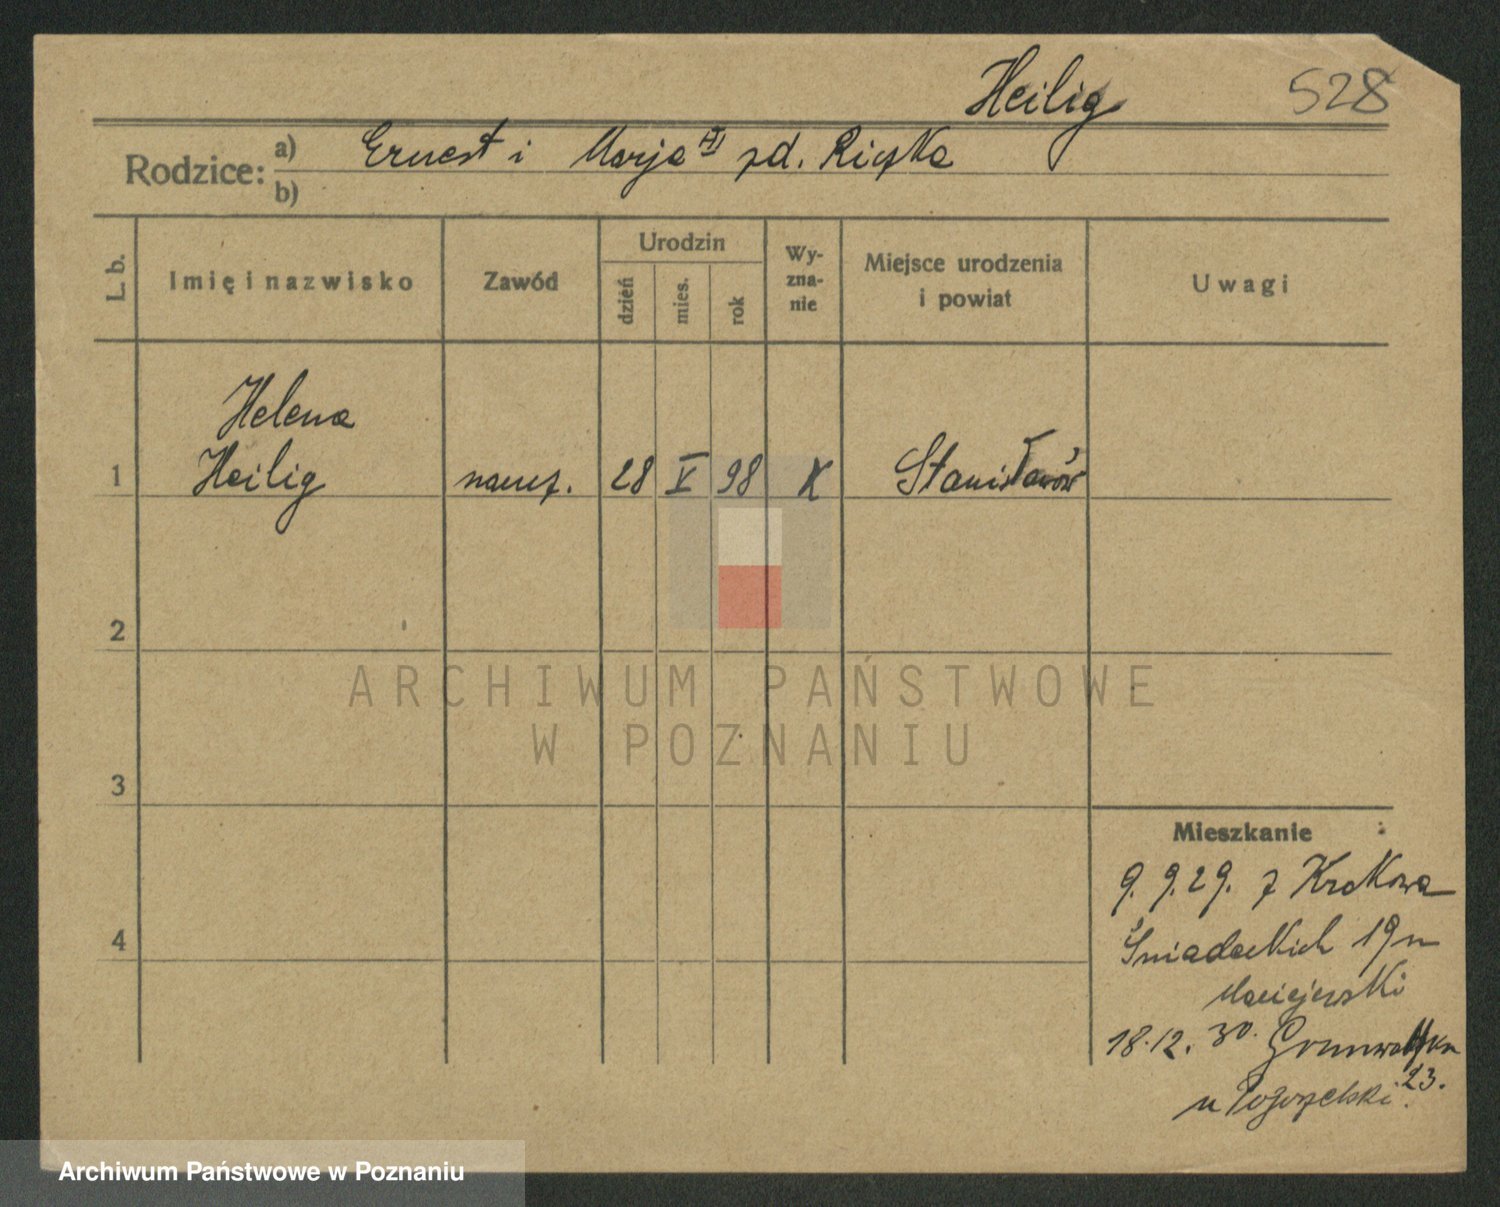 Heilig 528
Rodzice: a) Ernest i Marja zd. Rieska
b)
L. b. Imię i nazwisko Zawód Urodzin dzień mies. rok Wy-zna-nie Miejsce urodzenia i powiat Uwagi
Helena
1 Heilig naucz. 28 V 98 K Stanisławów
2
3
Mieszkanie
9.9.29. z Krakowa
4 Śniadeckich 19 u
Maciejewski
18.12.30. Grunwaldzka
23.
u Pogorzelski.
ARCHIWUM PAŃSTWOWE
W POZNANIU
Archiwum Państwowe w Poznaniu